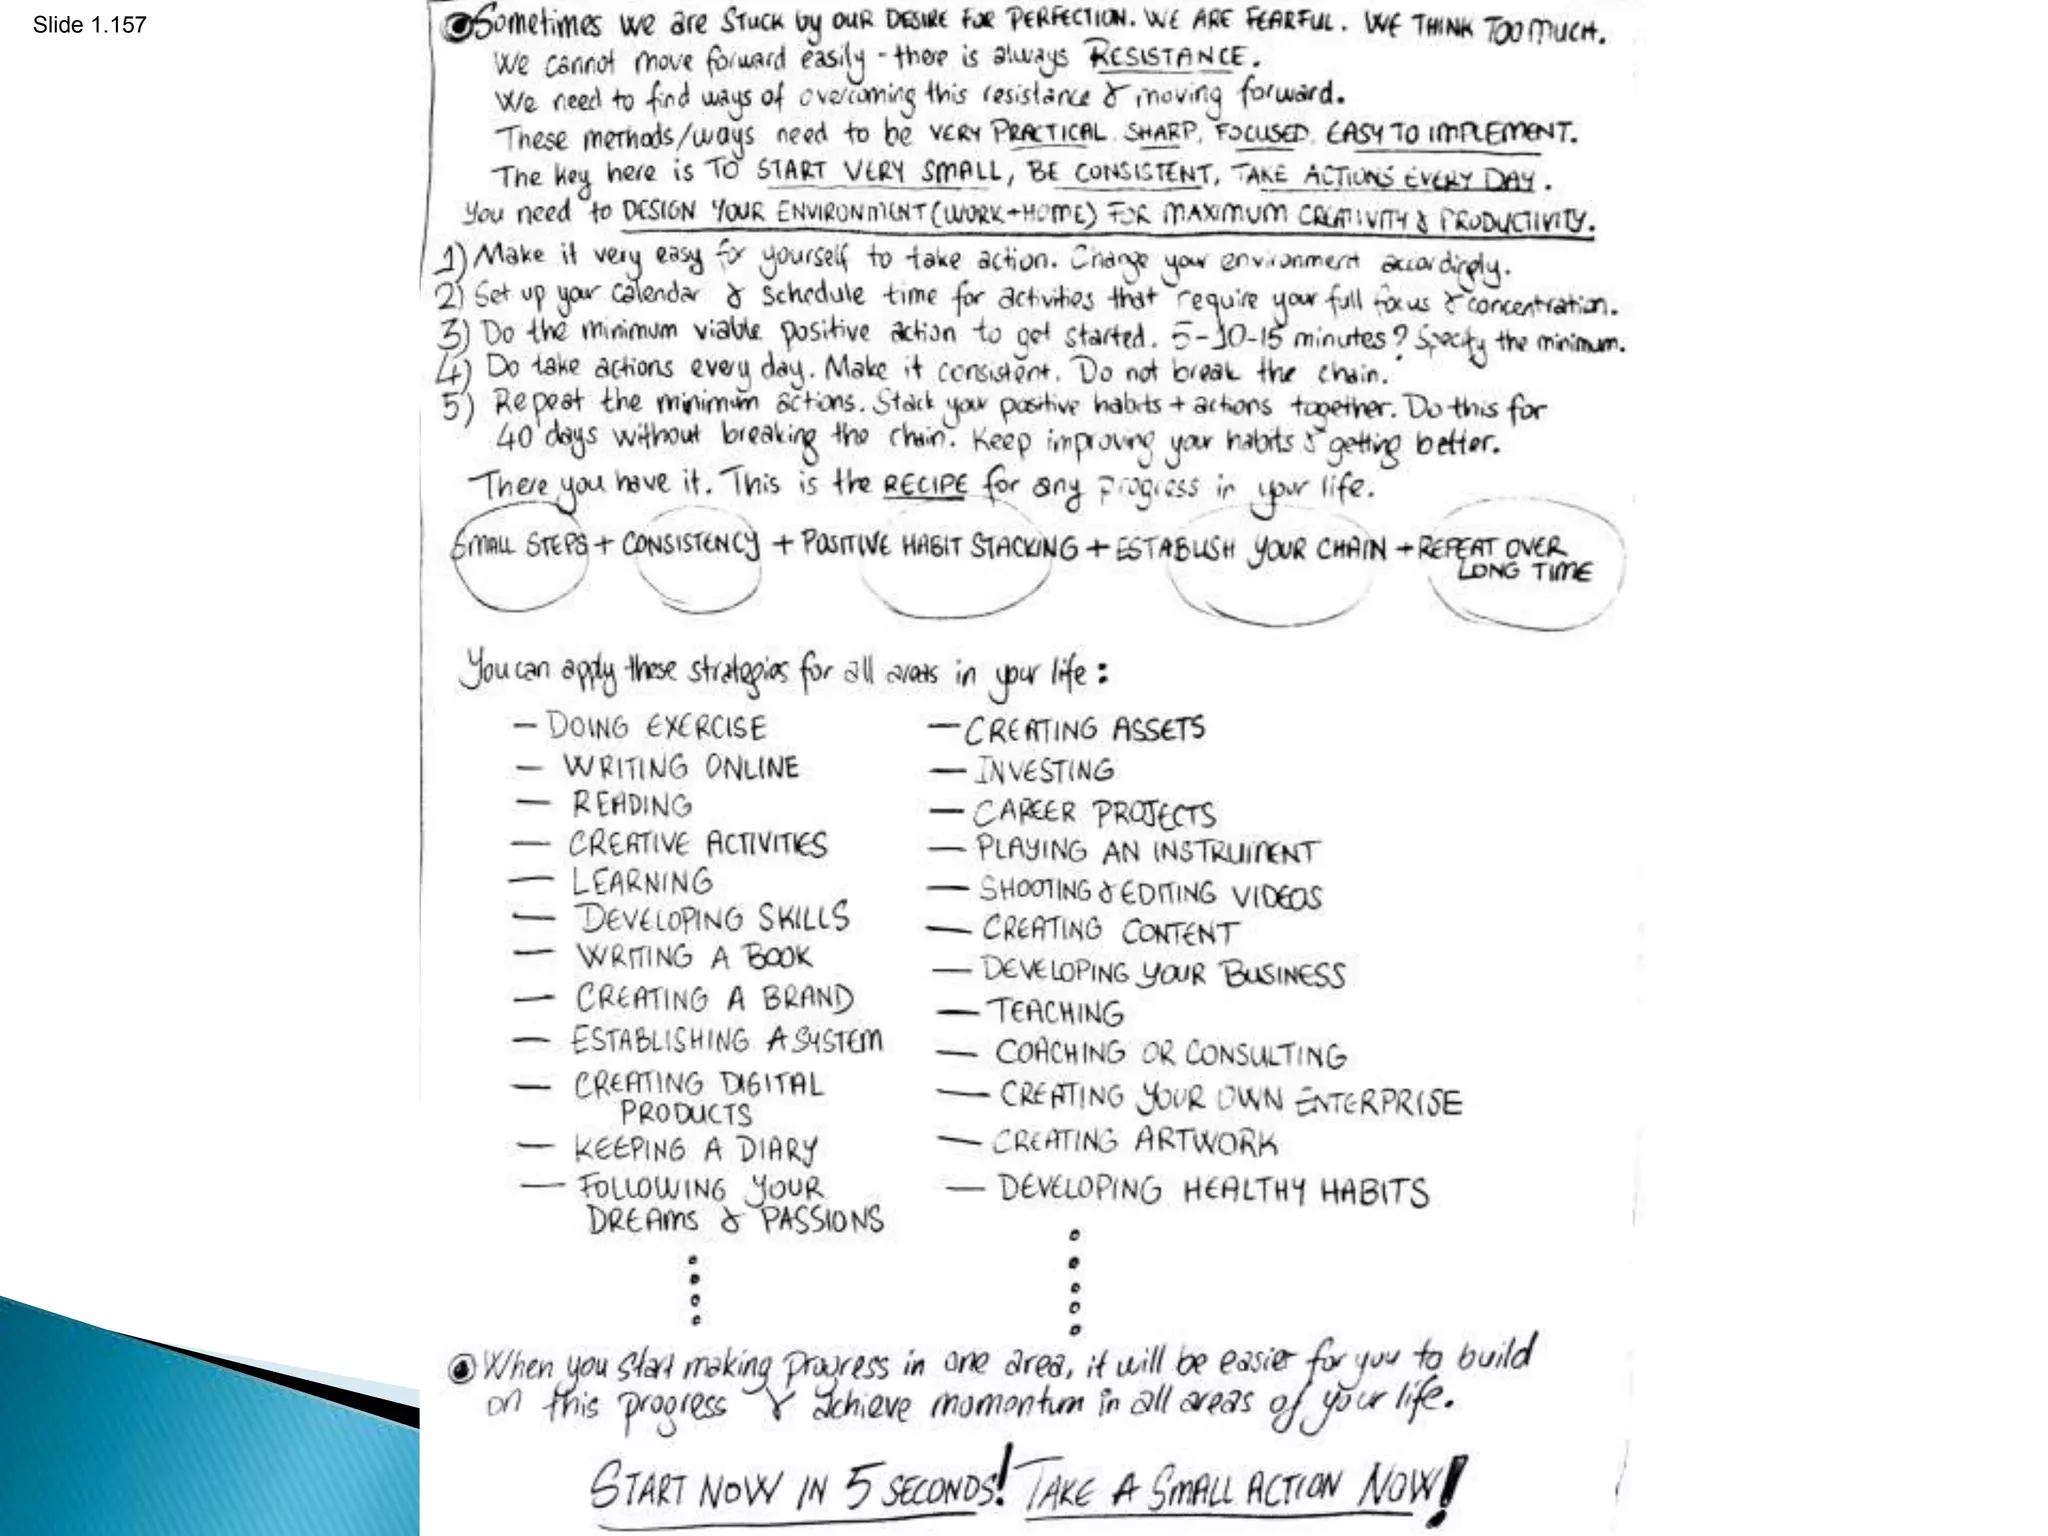 Slide 1.157
Sometimes we are STUCK by OUR DESIRE FOR PERFECTION. WE ARE FEARFUL. WE THINK TOO MUCH.
We cannot move forward easily - there is always RESISTANCE.
We need to find ways of overcoming this resistance & moving forward.
These methods/ways need to be VERY PRACTICAL. SHARP, FOCUSED. EASY TO IMPLEMENT.
The key here is TO START VERY SMALL, BE CONSISTENT, TAKE ACTIONS EVERY DAY.
You need to DESIGN YOUR ENVIRONMENT (WORK+HOME) FOR MAXIMUM CREATIVITY & PRODUCTIVITY.
1) Make it very easy for yourself to take action. Change your environment accordingly.
2) Set up your calendar & schedule time for activities that require your full focus & concentration.
3) Do the minimum viable positive action to get started. 5-10-15 minutes? Specify the minimum.
4) Do take actions every day. Make it consistent. Do not break the chain.
5) Repeat the minimum actions. Stack your positive habits + actions together. Do this for
40 days without breaking the chain. Keep improving your habits & getting better.
There you have it. This is the RECIPE for any progress in your life.
SMALL STEPS + CONSISTENCY + POSITIVE HABIT STACKING + ESTABLISH YOUR CHAIN + REPEAT OVER
LONG TIME
You can apply these strategies for all areas in your life:
- DOING EXERCISE
- WRITING ONLINE
- READING
- CREATIVE ACTIVITIES
- LEARNING
- DEVELOPING SKILLS
- WRITING A BOOK
- CREATING A BRAND
- ESTABLISHING A SYSTEM
- CREATING DIGITAL
PRODUCTS
- KEEPING A DIARY
- FOLLOWING YOUR
DREAMS & PASSIONS
- CREATING ASSETS
- INVESTING
- CAREER PROJECTS
- PLAYING AN INSTRUMENT
- SHOOTING & EDITING VIDEOS
- CREATING CONTENT
- DEVELOPING YOUR BUSINESS
- TEACHING
- COACHING OR CONSULTING
- CREATING YOUR OWN ENTERPRISE
- CREATING ARTWORK
- DEVELOPING HEALTHY HABITS
When you start making progress in one area, it will be easier for you to build
on this progress & achieve momentum in all areas of your life.
START NOW IN 5 SECONDS! TAKE A SMALL ACTION NOW!